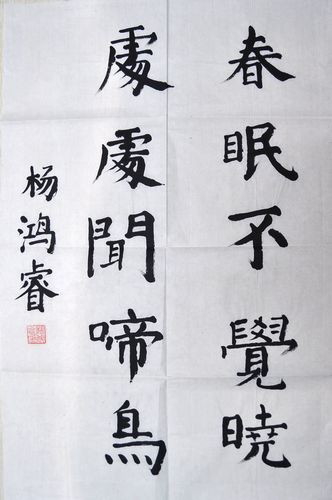 春眠不覺曉
處處聞啼鳥
杨鸿睿